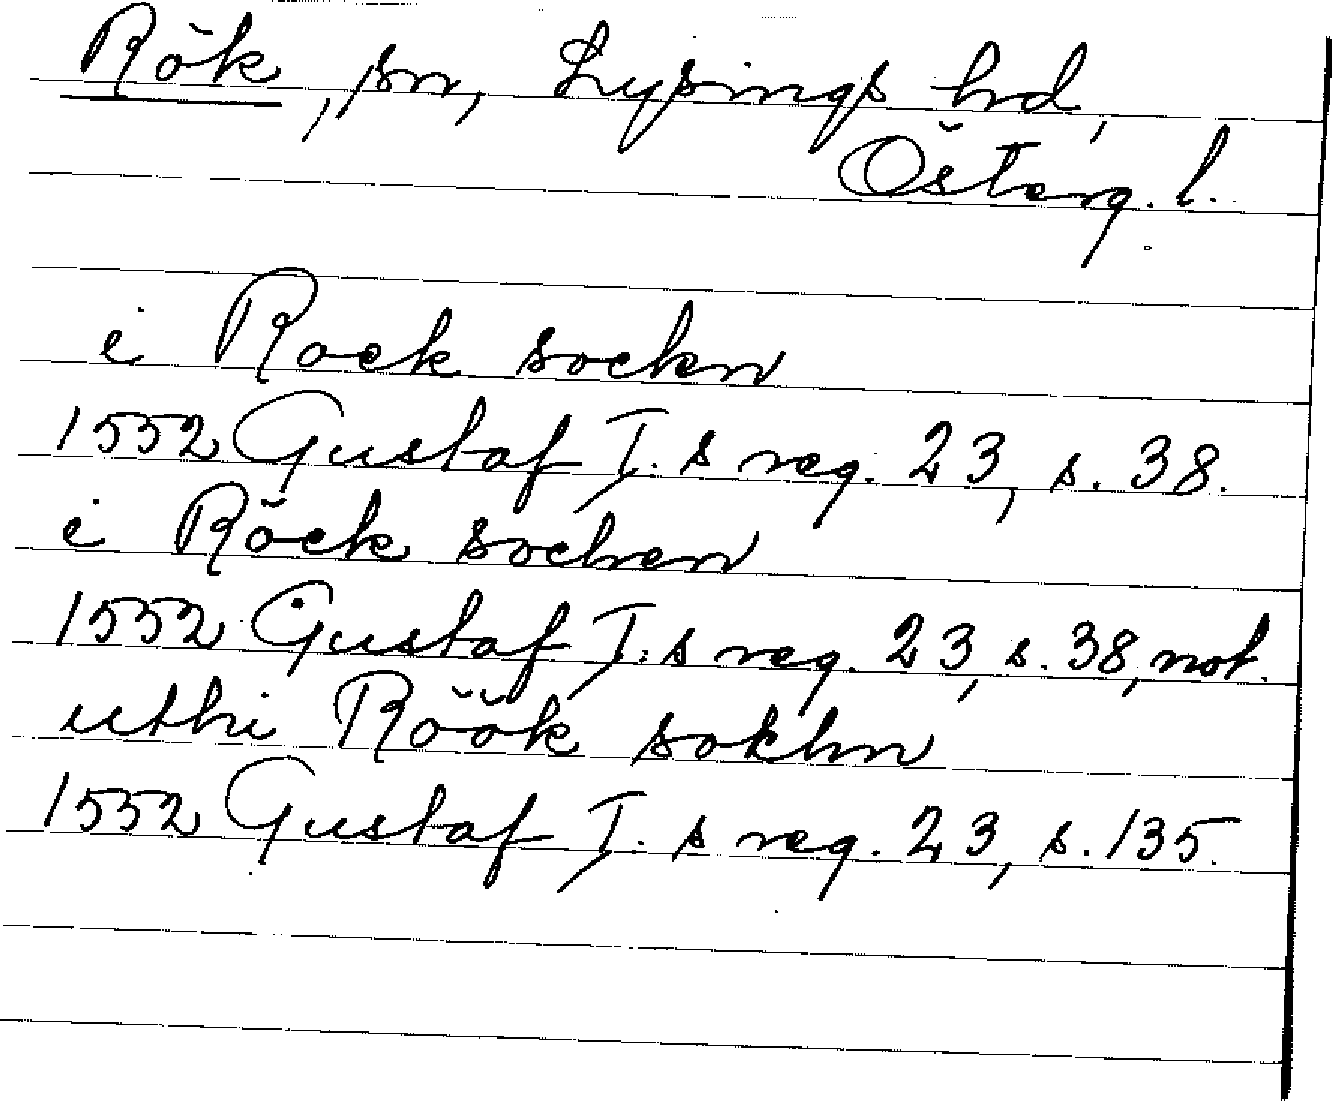 Rök, sn, Lysings hd,
Österg. l.
i Roek sockn
1552 Gustaf I:s reg. 23, s. 38.
i Röek sochen
1552 Gustaf I:s reg. 23, s. 38, not.
uthi Röök sokhn
1552 Gustaf I:s reg. 23, s. 135.